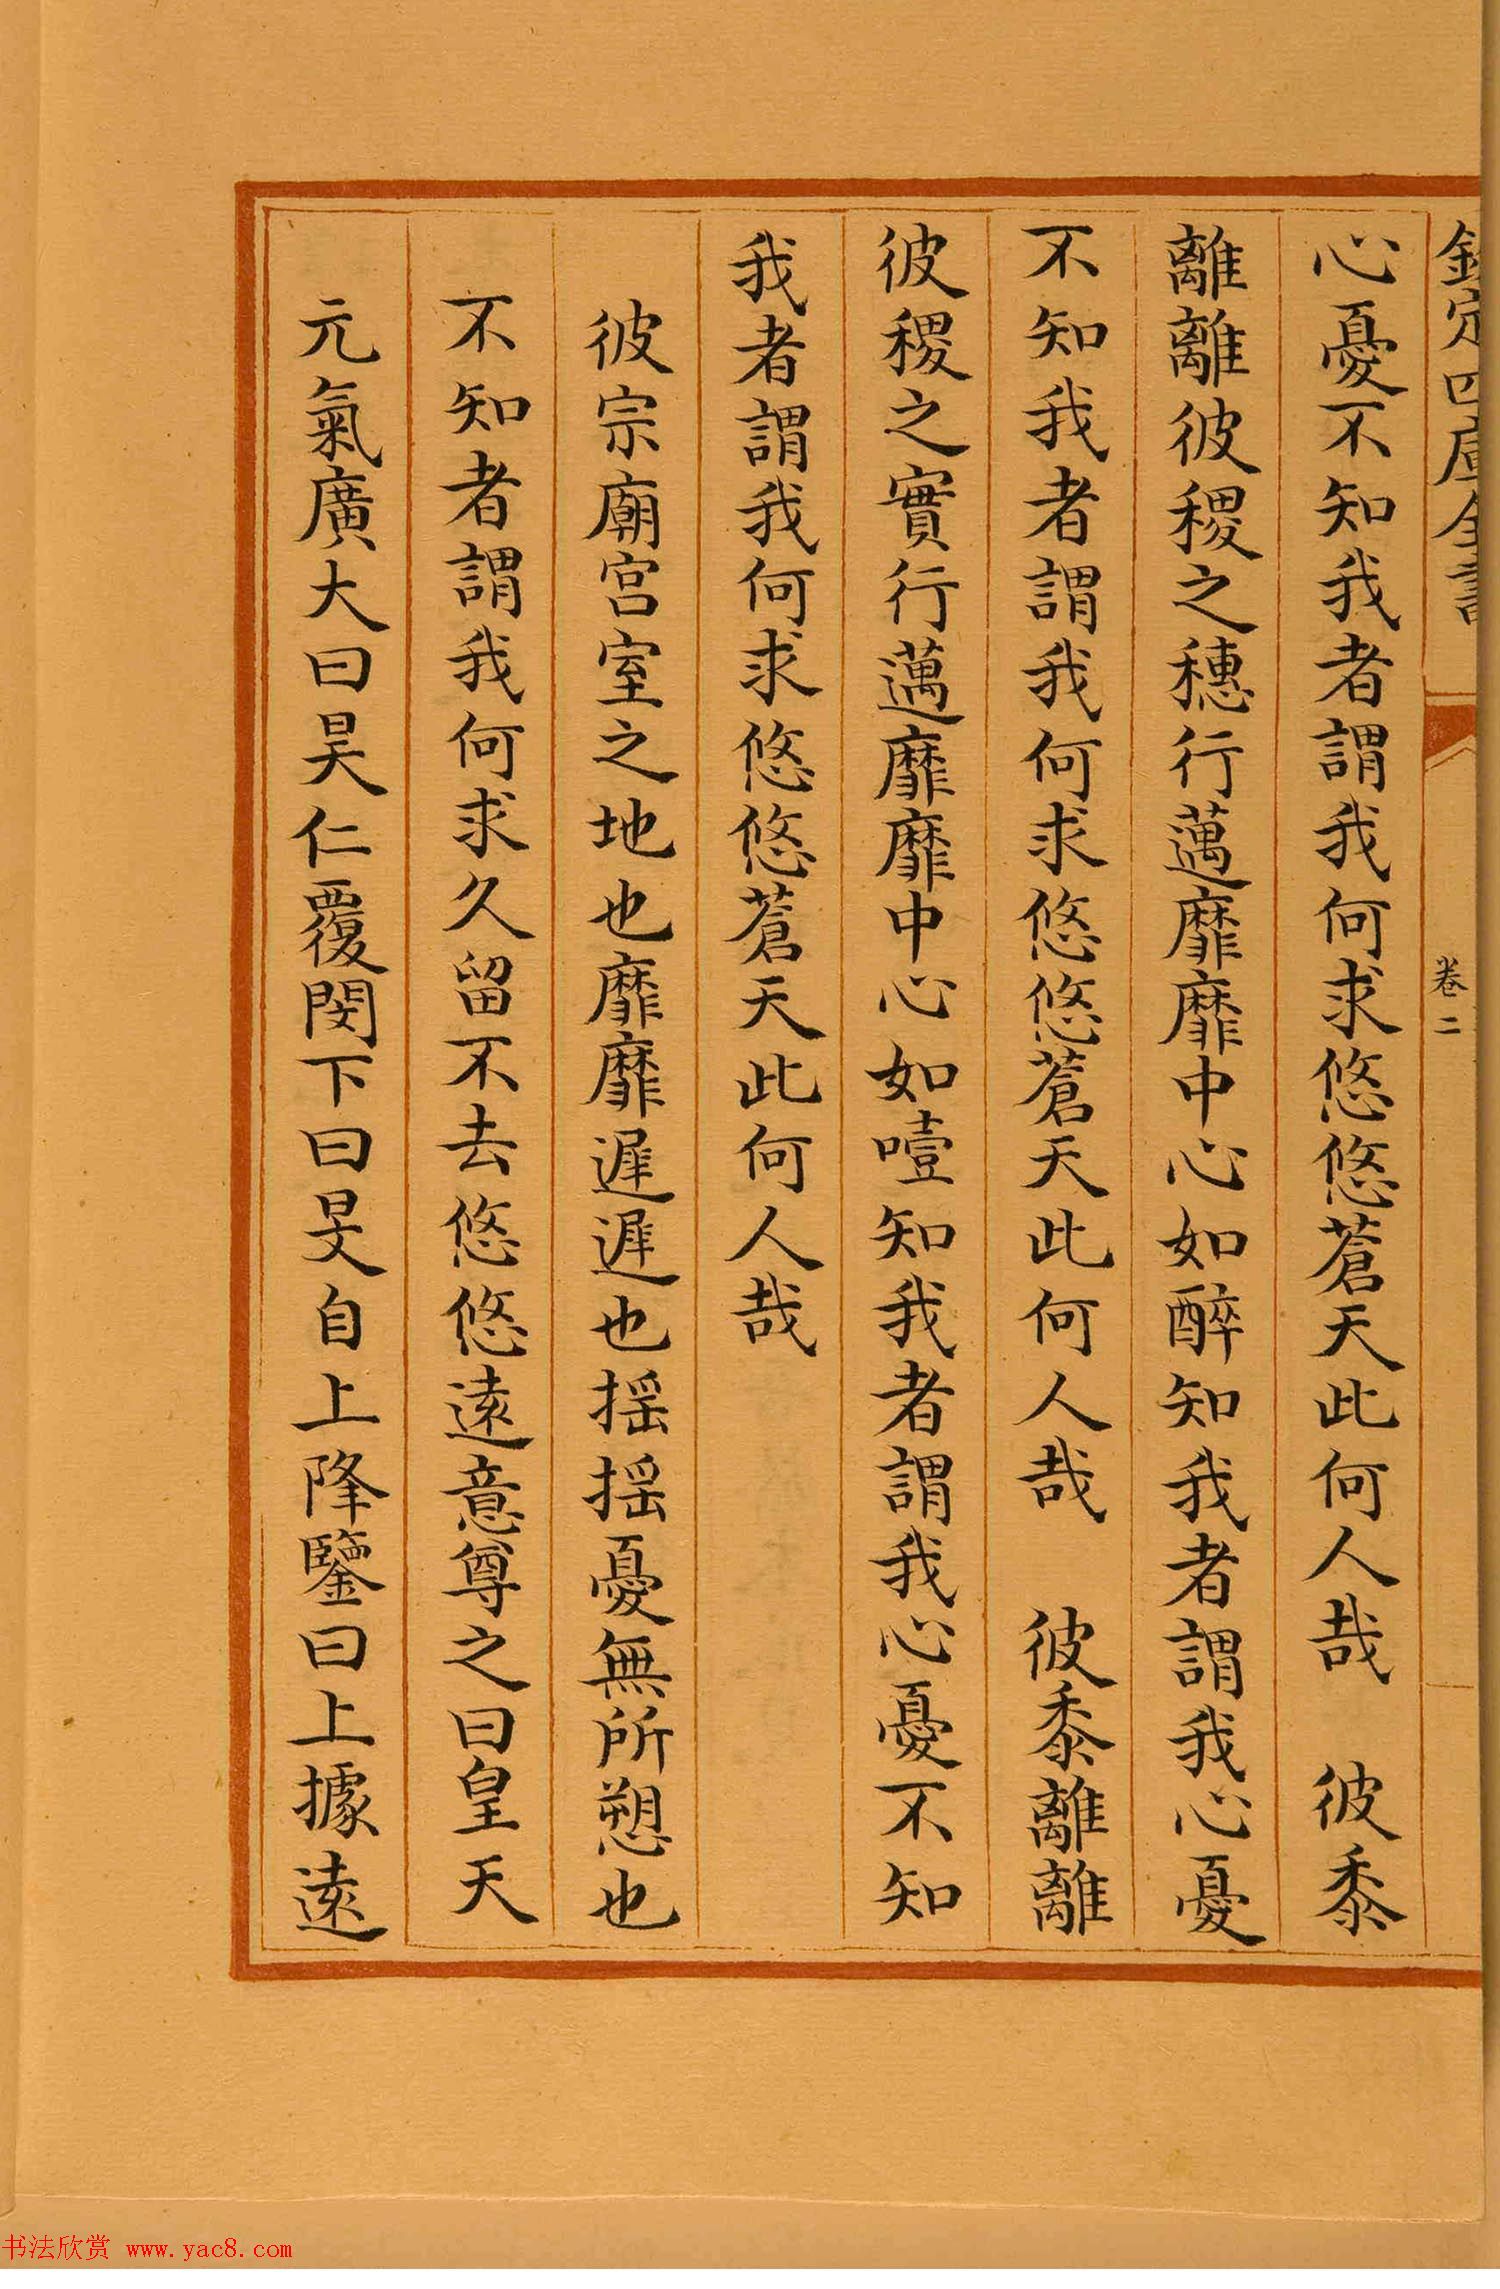 欽定四庫全書
卷二
心憂不知我者謂我何求悠悠蒼天此何人哉　彼黍
離離彼稷之穗行邁靡靡中心如醉知我者謂我心憂
不知我者謂我何求悠悠蒼天此何人哉　彼黍離離
彼稷之實行邁靡靡中心如噎知我者謂我心憂不知
我者謂我何求悠悠蒼天此何人哉
彼宗廟宮室之地也靡靡遲遲也揺揺憂無所愬也
不知者謂我何求久留不去悠悠逺意尊之曰皇天
元氣廣大曰昊仁覆閔下曰旻自上降鑒曰上據逺
书法欣赏 www.yac8.com